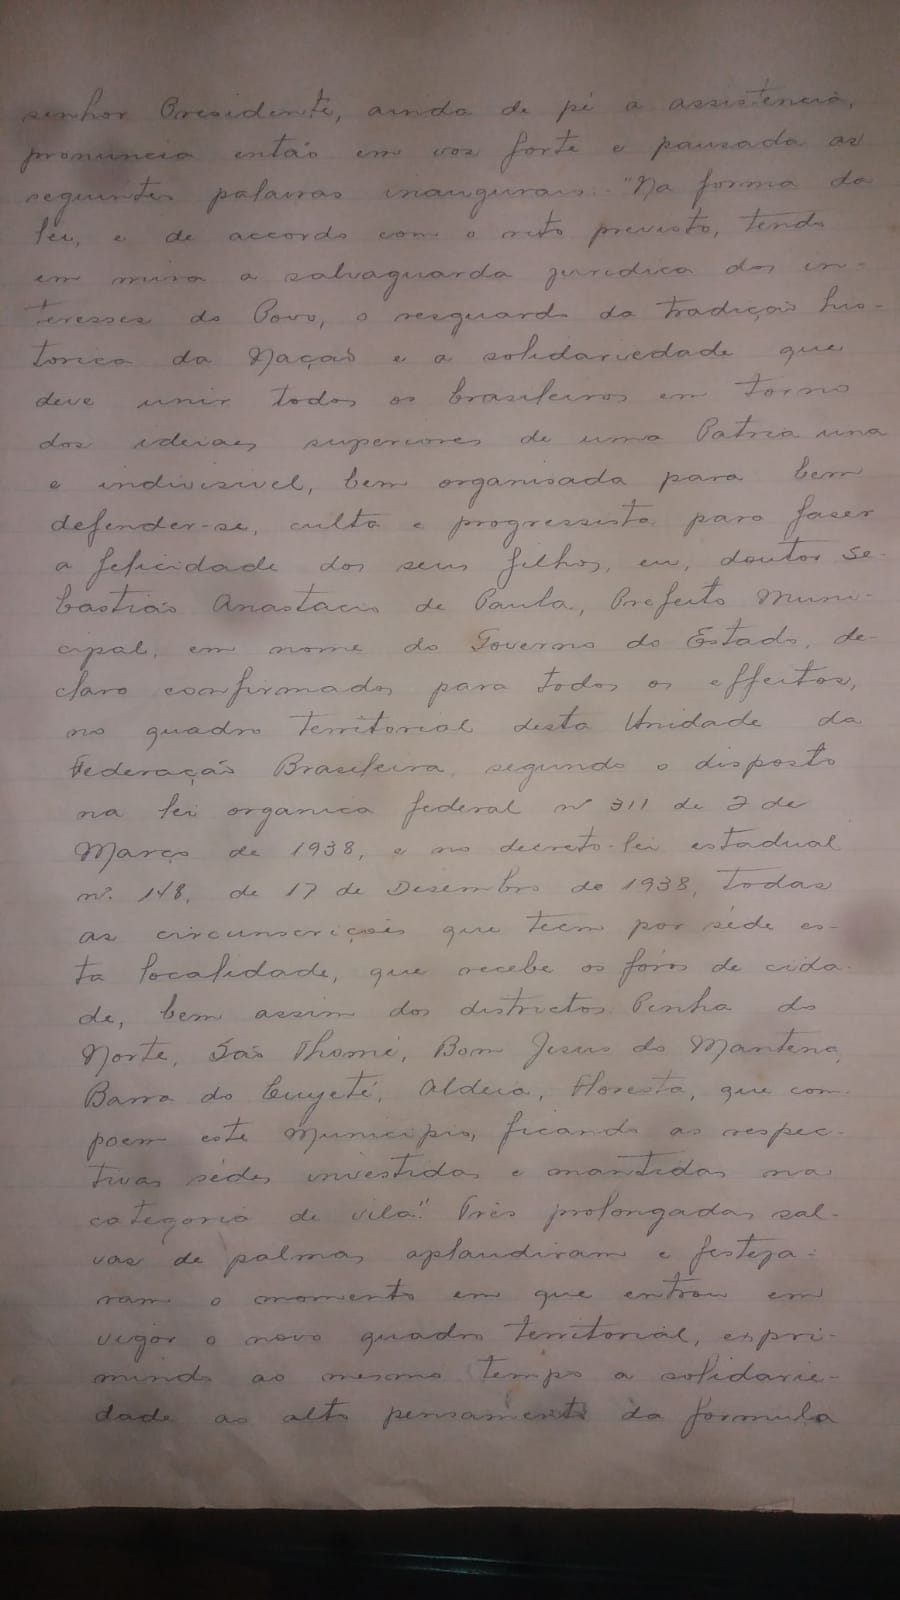 senhor Presidente, ainda de pé a assistencia,
pronuncia então em voz forte e pausada as
seguintes palavras inaugurais: "Na forma da
lei, e de accordo com o rito previsto, tendo
em mira a salvaguarda juridica dos in-
teresses do Povo, o resguardo da tradição his-
torica da Nação e a solidariedade que
deve unir todos os brasileiros em torno
dos ideiaes superiores de uma Patria una
e indivisivel, bem organisada para bem
defender-se, culta e progressista para faser
a felicidade dos seus filhos, eu, doutor Se-
bastião Anastacio de Paula, Prefeito Muni-
cipal, em nome do Governo do Estado, de-
claro confirmados para todos os effeitos,
no quadro territorial desta Unidade da
Federação Brasileira, segundo o disposto
na lei organica federal nº 311 de 2 de
Março de 1938, e no decreto-lei estadual
nº. 148, de 17 de Desembro de 1938, todas
as circunscrições que teem por séde es-
ta localidade, que recebe os fóros de cida-
de, bem assim dos districtos Penha do
Norte, São Thomé, Bom Jesus do Mantena,
Barra do Cuyeté, Aldeia, Floresta, que com-
poem este Municipio, ficando as respec-
tivas sédes investidas e mantidas na
categoria de vila". Três prolongadas sal-
vas de palmas aplaudiram e festeja-
ram o momento em que entrou em
vigor o novo quadro territorial, expri-
mindo ao mesmo tempo a solidarie-
dade ao alto pensamento da formula